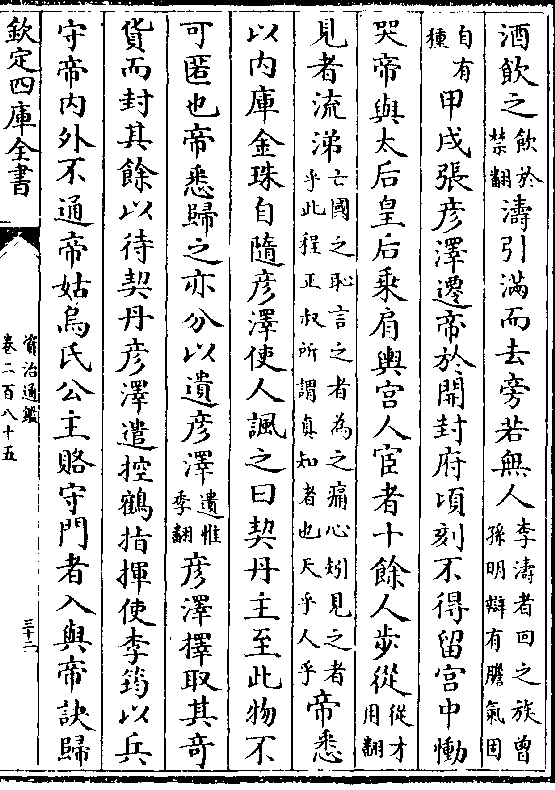 酒飲之飲於禁翻濤引滿而去旁若無人李濤者回之族曾孫明辯有膽氣固
自有種甲戌張彦澤遷帝於開封府頃刻不得留宮中慟
哭帝與太后皇后乘肩輿宫人宦者十餘人步從從才用翻
見者流涕亡國之恥言之者為之痛心矧見之者乎此程正叔所謂真知者也天乎人乎帝悉
以内庫金珠自隨彦澤使人諷之曰契丹主至此物不
可匿也帝悉歸之亦分以遺彦澤遺惟季翻彦澤擇取其奇
貨而封其餘以待契丹彦澤遣控鶴指揮使李筠以兵
守帝内外不通帝姑烏氏公主賂守門者入與帝訣歸
欽定四庫全書
資治通鑑
卷二百八十五
三十二